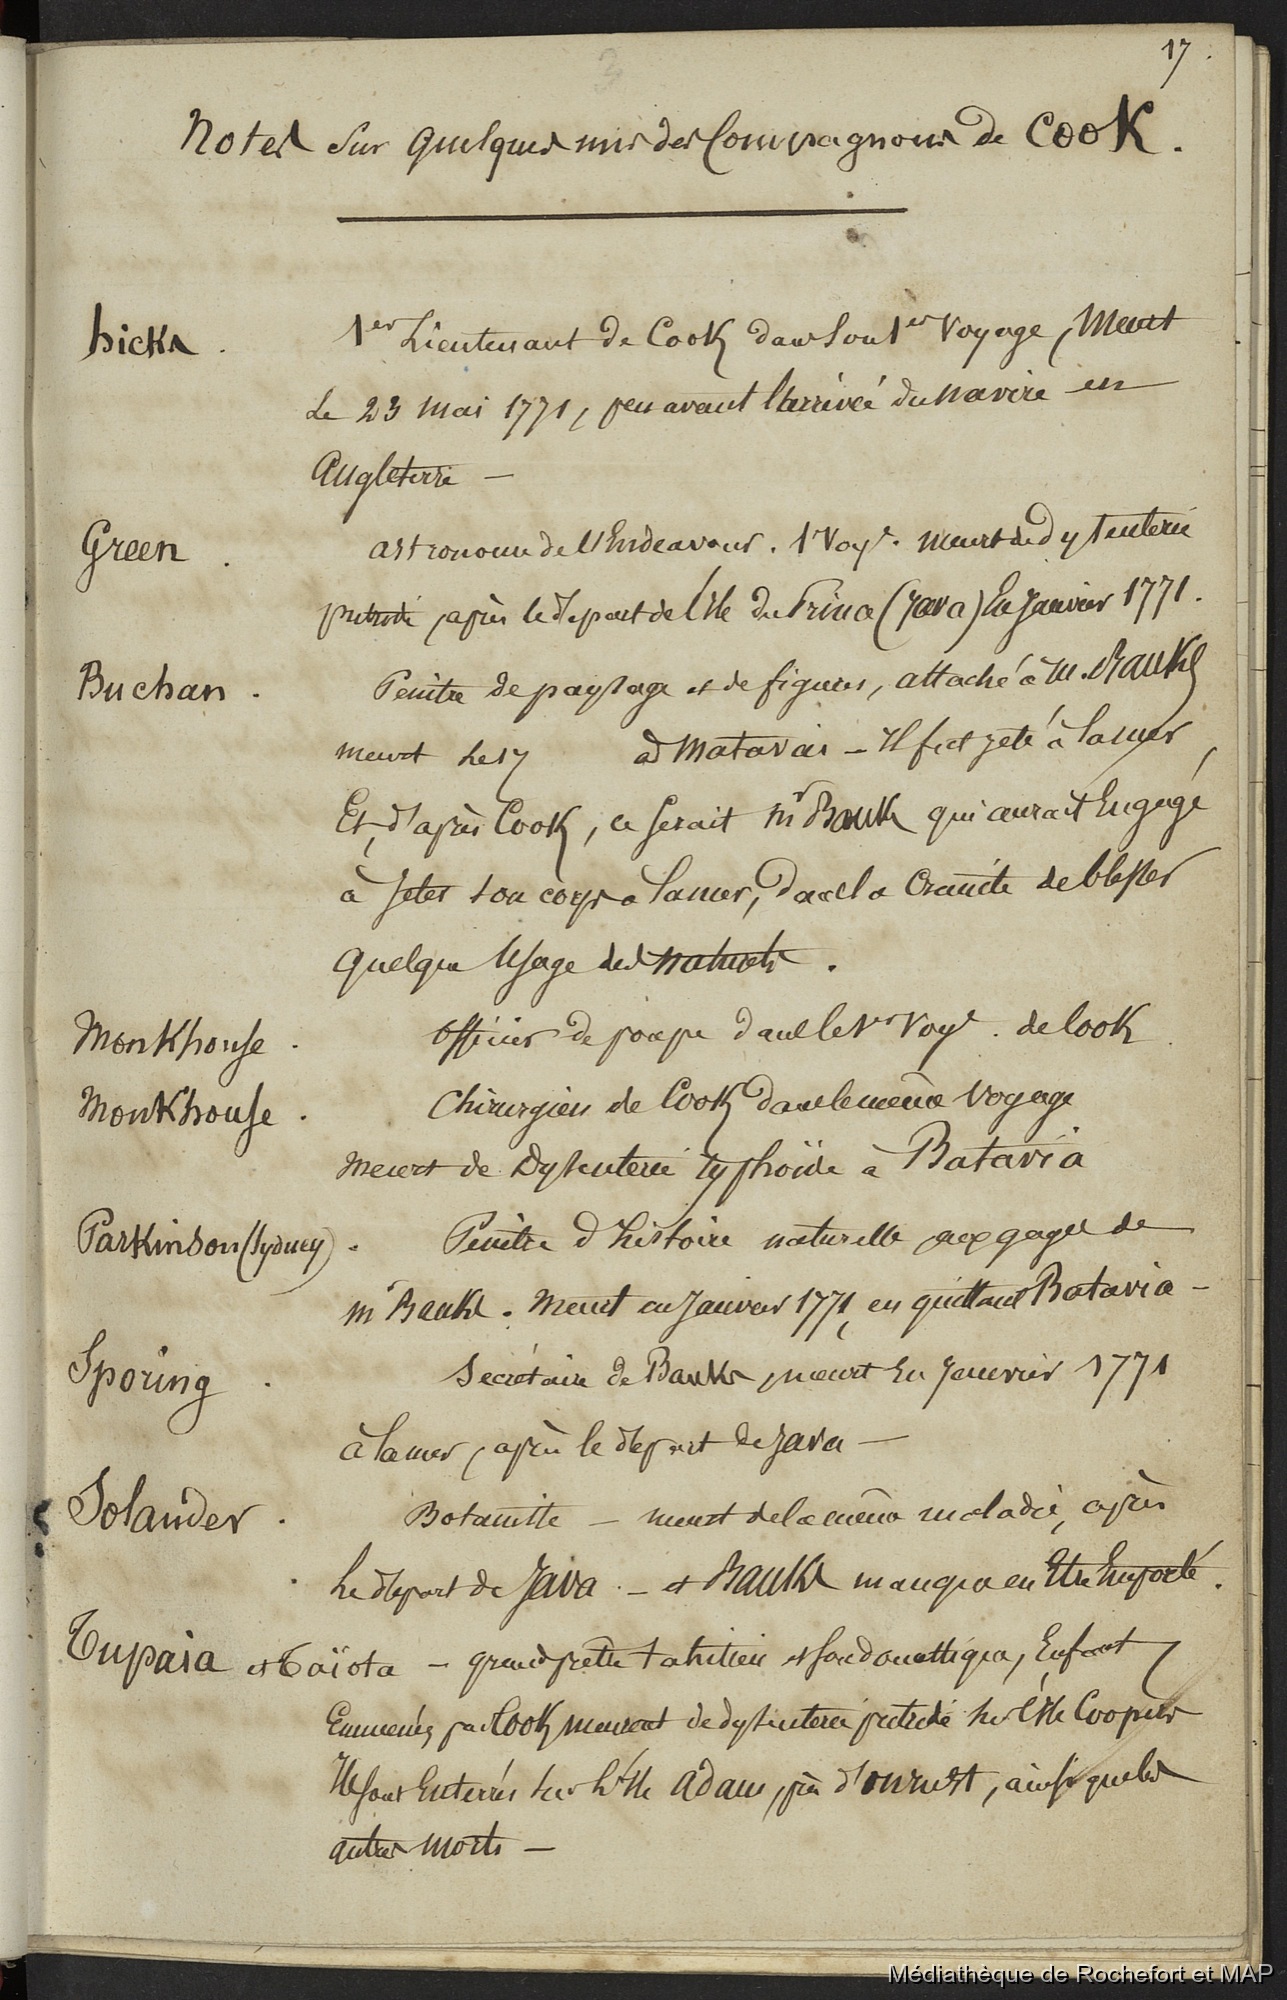 17.
3
Notes sur quelques uns des Compagnons de Cook.
hicks. 1er Lieutenant de Cook dans son 1er Voyage, Meurt
Le 23 mai 1771, peu avant l'arrivée du navire en
Angleterre —
Green. astronome de l'Endeavour. 1r Voye. meurt de dyssenterie
putride, après le départ de l'île du Prince (Java) En Janvier 1771.
Buchan. Peintre de paysage et de figures, attaché à M. Banks
meurt le 17 à Matavai — Il fut jeté à la mer,
Et, d'après Cook, ce serait Mr Banks qui aurait Engagé
à jeter son corps à la mer, dans la Crainte de blesser
quelque Usage des naturels.
Monkhouse. officier de poupe dans le 1r Voye. de Cook
Monkhouse. Chirurgien de Cook dans le même Voyage
Meurt de Dyssenterie typhoïde à Batavia
Parkinson (Sydney). Peintre d'histoire naturelle aux gages de
Mr Banks. Meurt en Janvier 1771, en quittant Batavia —
Sporing. Secrétaire de Banks, meurt En Janvier 1771
à la mer, après le départ de Java —
Solander. Botaniste — meurt de la même maladie, après
Le départ de Java. — et Banks manqua en Etre Emporté.
Tupaia et Taïota — grand prêtre tahitien et son domestique, Enfant
Emmenés par Cook meurent de dyssenterie putride sur l'île Coopers
Ils sont Enterrés sur l'île Adam, près d'ounrust, ainsi que les
autres morts —
Médiathèque de Rochefort et MAP